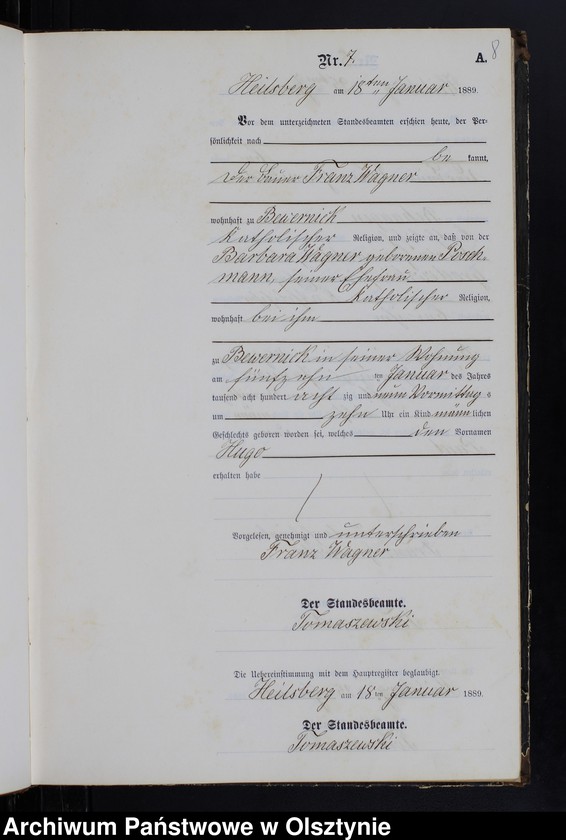 8
Nr. 7. A.
Heilsberg am 18ten Januar 1889.
Vor dem unterzeichneten Standesbeamten erschien heute, der Per-
sönlichkeit nach
be kannt,
der Bauer Franz Wagner
wohnhaft zu Bewernick
Katholischer Religion, und zeigte an, daß von der
Barbara Wagner geborenen Posch-
mann, seiner Ehefrau
Katholischer Religion,
wohnhaft bei ihm
zu Bewernick in seiner Wohnung
am fünfzehn ten Januar des Jahres
tausend acht hundert acht zig und neun Vormittag s
um zehn Uhr ein Kind männlichen
Geschlechts geboren worden sei, welches den Vornamen
Hugo
erhalten habe
Vorgelesen, genehmigt und unterschrieben
Franz Wagner
Der Standesbeamte.
Tomaszewski
Die Uebereinstimmung mit dem Hauptregister beglaubigt.
Heilsberg am 18ten Januar 1889.
Der Standesbeamte.
Tomaszewski
Archiwum Państwowe w Olsztynie